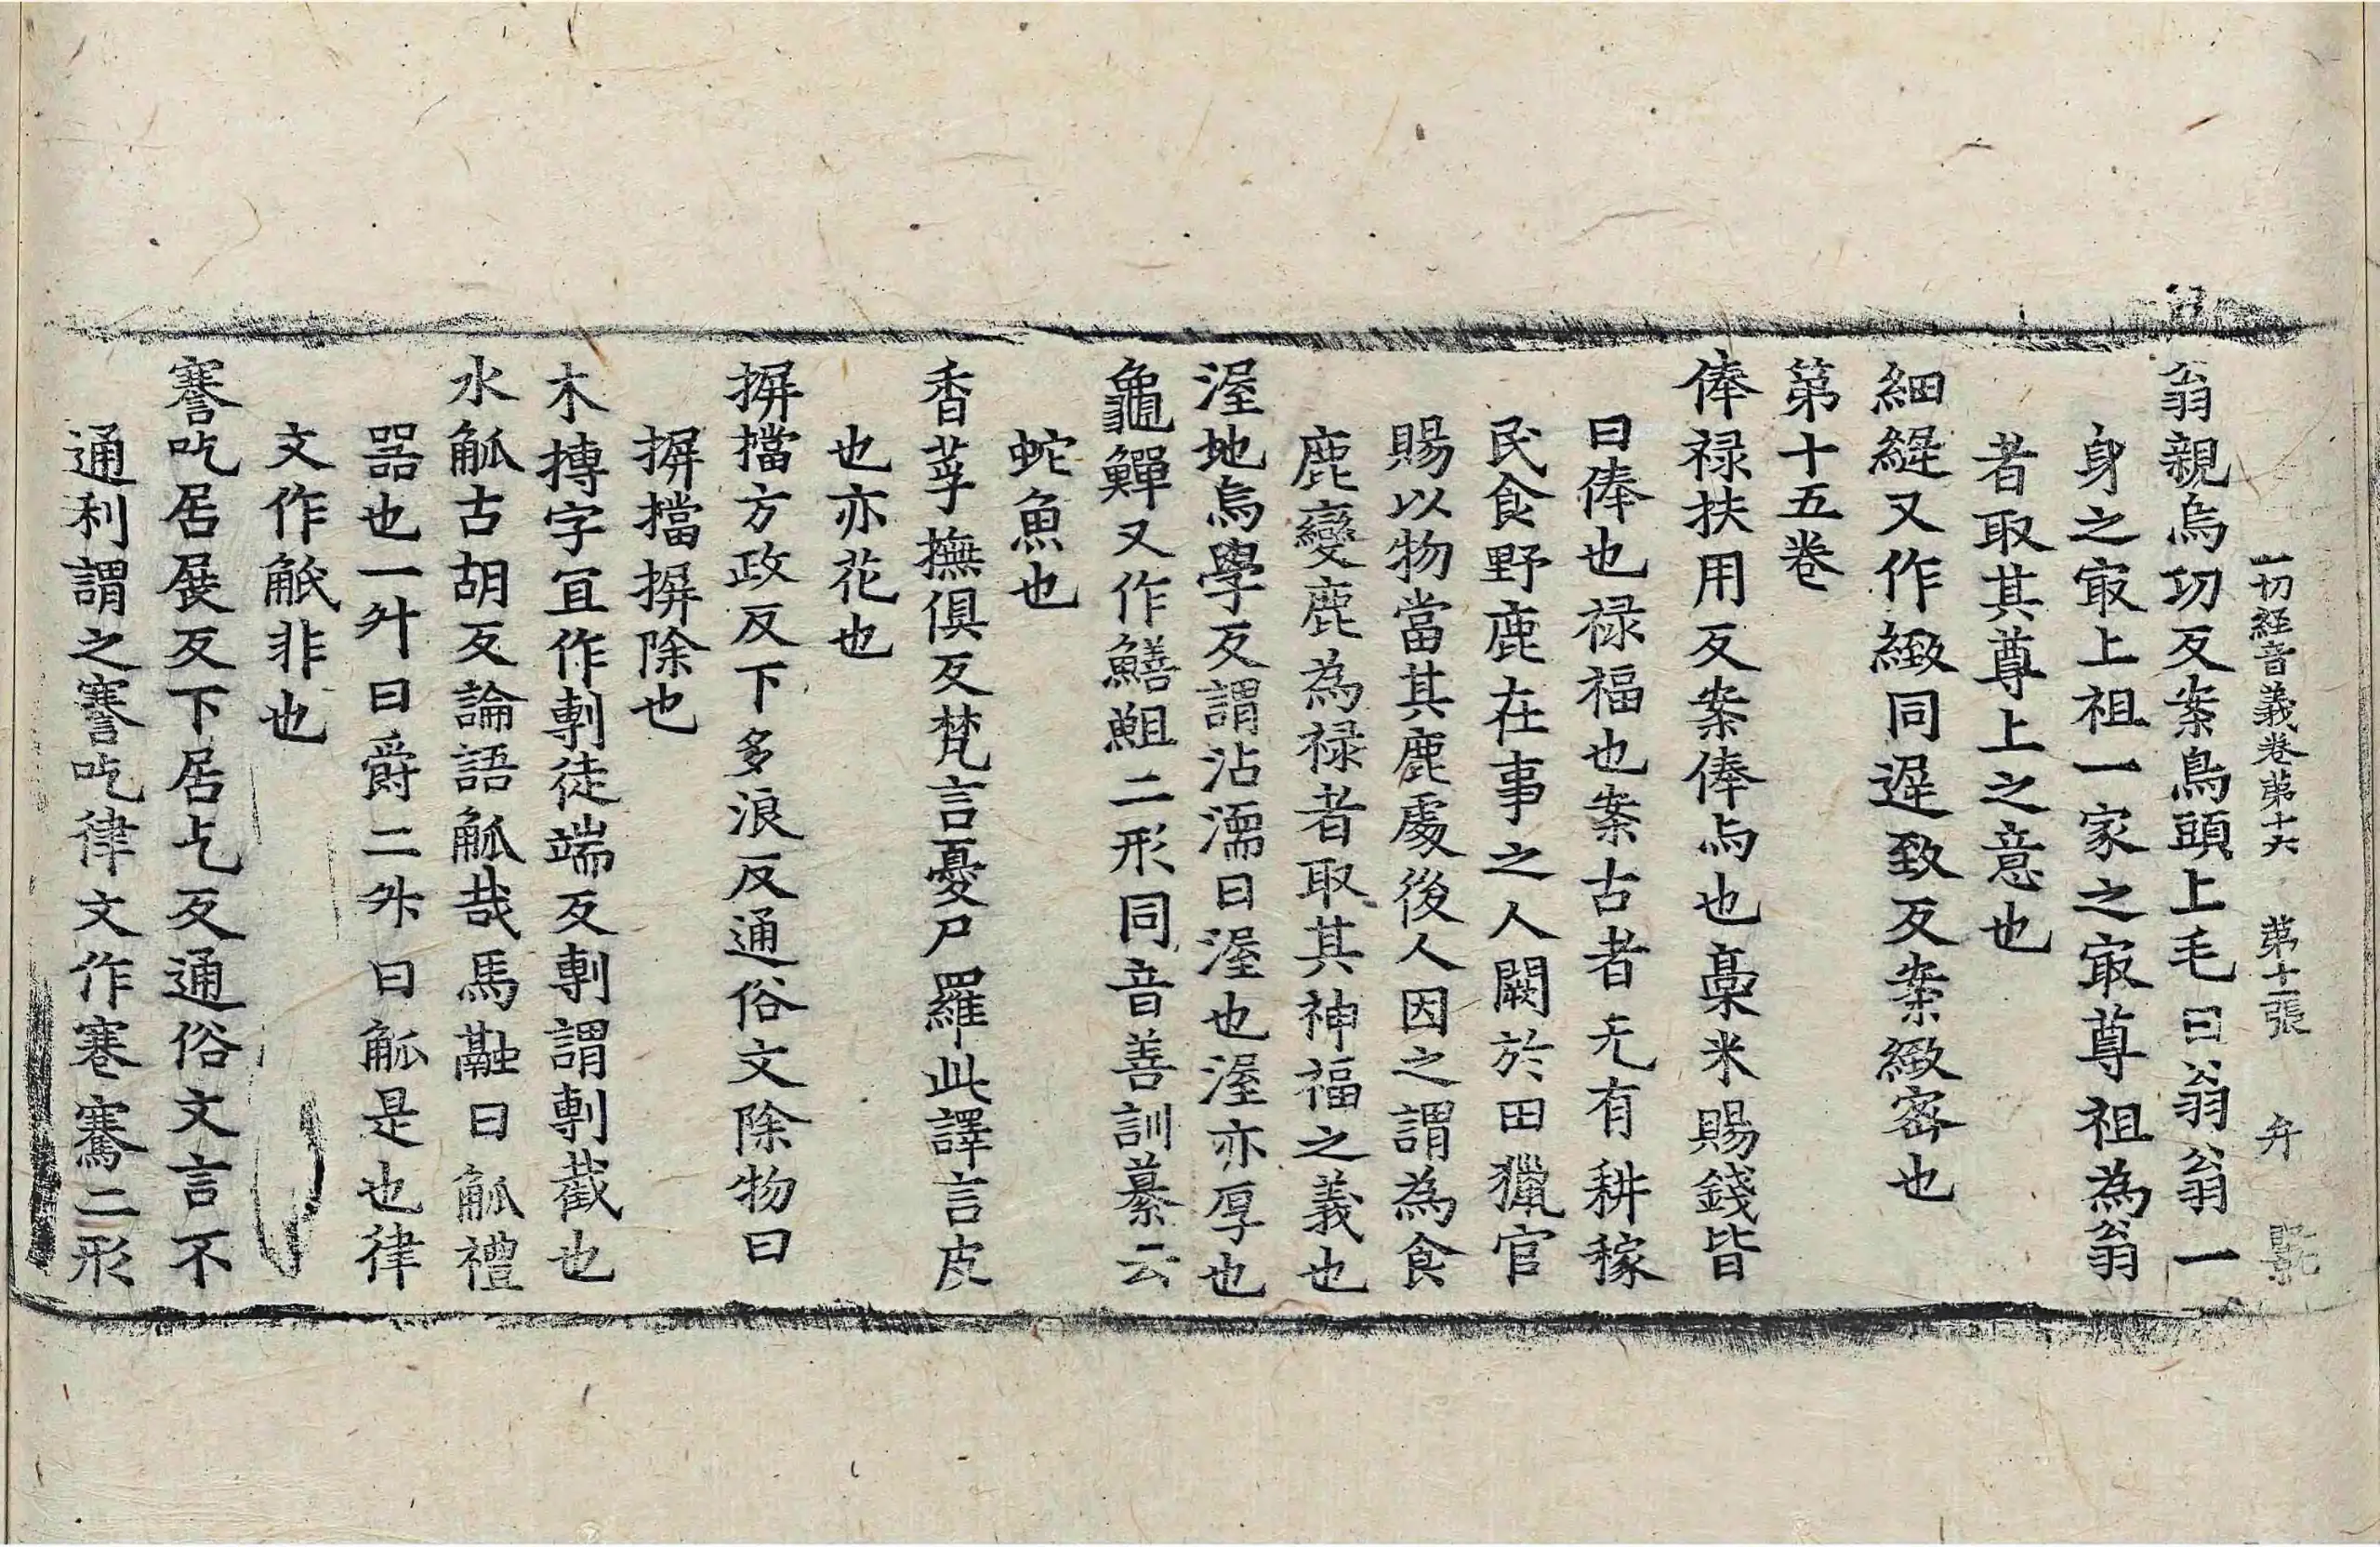 一切經音義卷第十六 第十二張 弁
翁親烏功反案鳥頭上毛曰翁翁一
身之㝡上祖一家之㝡尊祖為翁
者取其尊上之意也
細緹又作緻同遟致反案緻宻也
第十五卷
俸禄扶用反案俸与也稾米賜錢皆
曰俸也禄福也案古者无有耕稼
民食野鹿在事之人闕於田獵官
賜以物當其鹿處後人因之謂為食
鹿變鹿為禄者取其神福之義也
渥地烏學反謂沾濡曰渥也渥亦厚也
龜鱓又作鱔䱉二形同音善訓纂云
蛇魚也
香莩撫俱反梵言憂尸羅此譯言皮
也亦花也
摒擋方政反下多浪反通俗文除物曰
摒擋摒除也
木摶字冝作剸徒端反剸謂剸截也
水觚古胡反論語觚哉馬融曰觚禮
器也一升曰爵二升曰觚是也律
文作觗非也
謇吃居展反下居乞反通俗文言不
通利謂之謇吃律文作寋騫二形